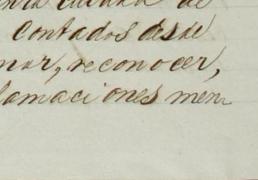 ciudad de
contados desde
mar, reconocer,
lamaciones men